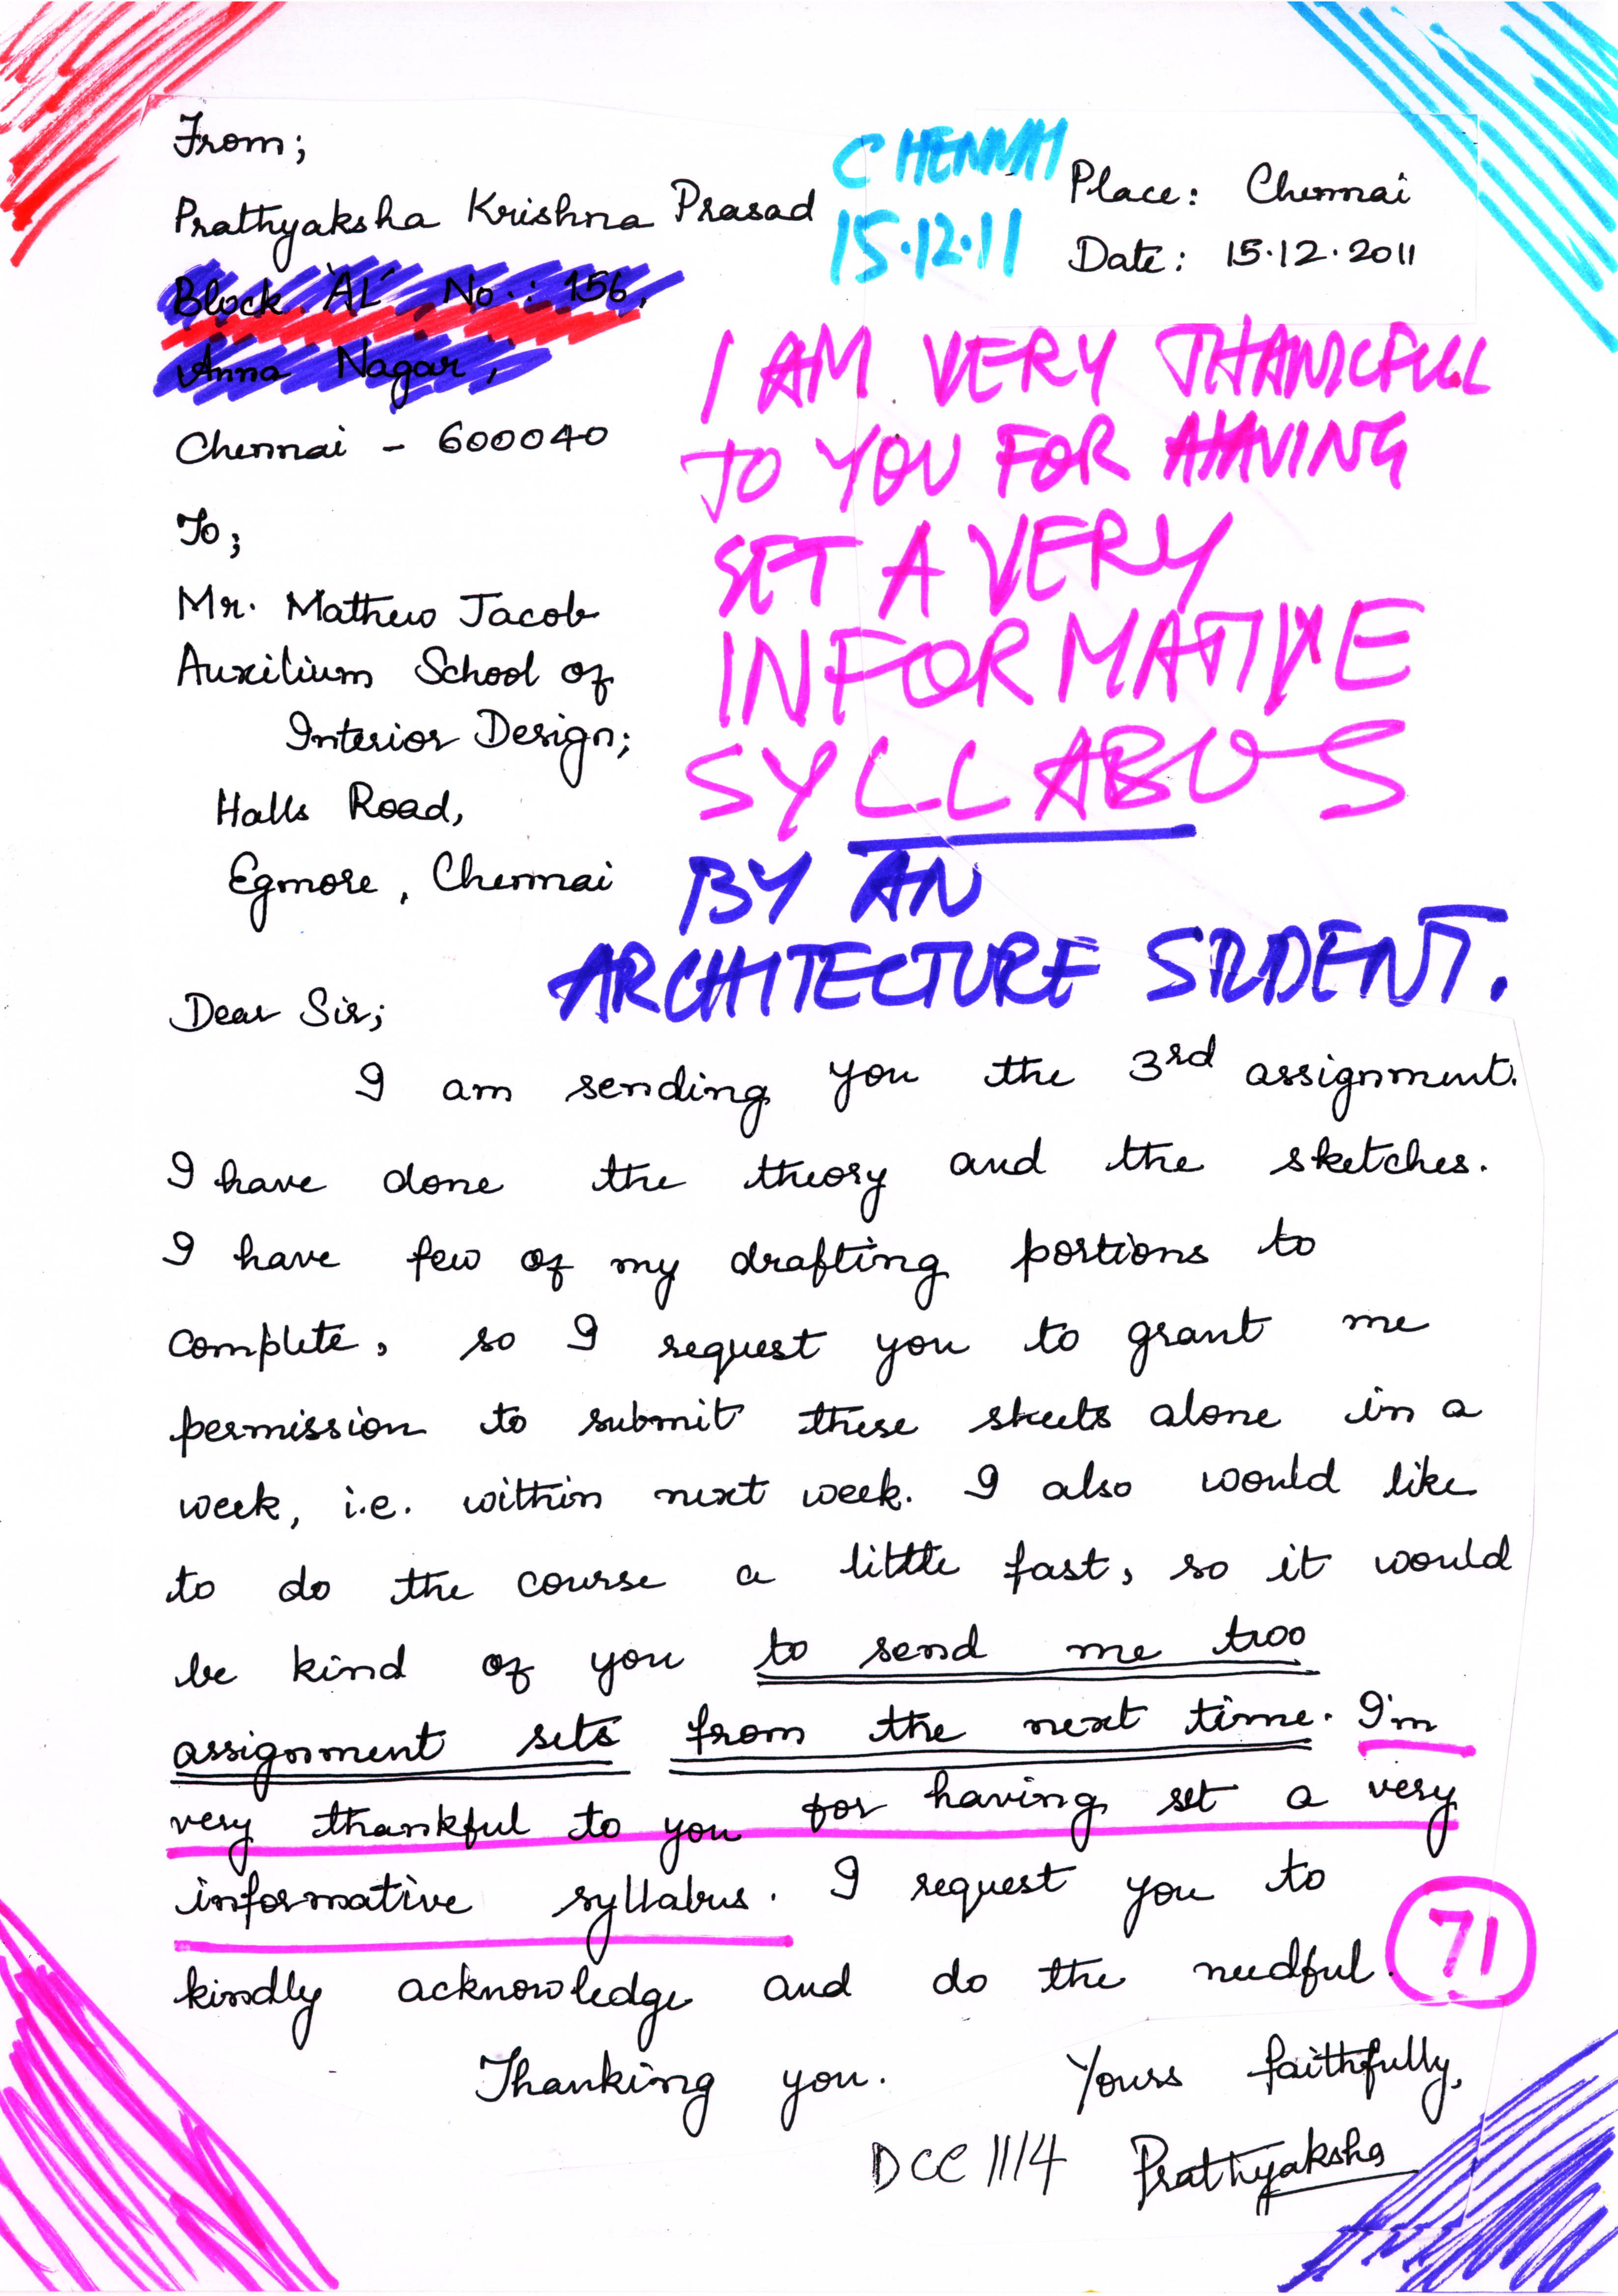 From;
Prathyaksha Krishna Prasad
Block 'AL', No.: 156,
Anna Nagar,
Chennai - 600040
CHENNAI
15.12.11
Place: Chennai
Date: 15.12.2011
To;
Mr. Mathew Jacob
Auxilium School of
Interior Design;
Halls Road,
Egmore, Chennai
I AM VERY THANKFUL
TO YOU FOR HAVING
SET A VERY
INFORMATIVE
SYLLABUS
BY AN
ARCHITECTURE STUDENT.
Dear Sir;
I am sending you the 3rd assignment.
I have done the theory and the sketches.
I have few of my drafting portions to
complete, so I request you to grant me
permission to submit these sheets alone in a
week, i.e. within next week. I also would like
to do the course a little fast, so it would
be kind of you to send me two
assignment sets from the next time. I'm
very thankful to you for having set a very
informative syllabus. I request you to
kindly acknowledge and do the needful.
71
Thanking you. Yours faithfully,
DCC 11/4 Prathyaksha